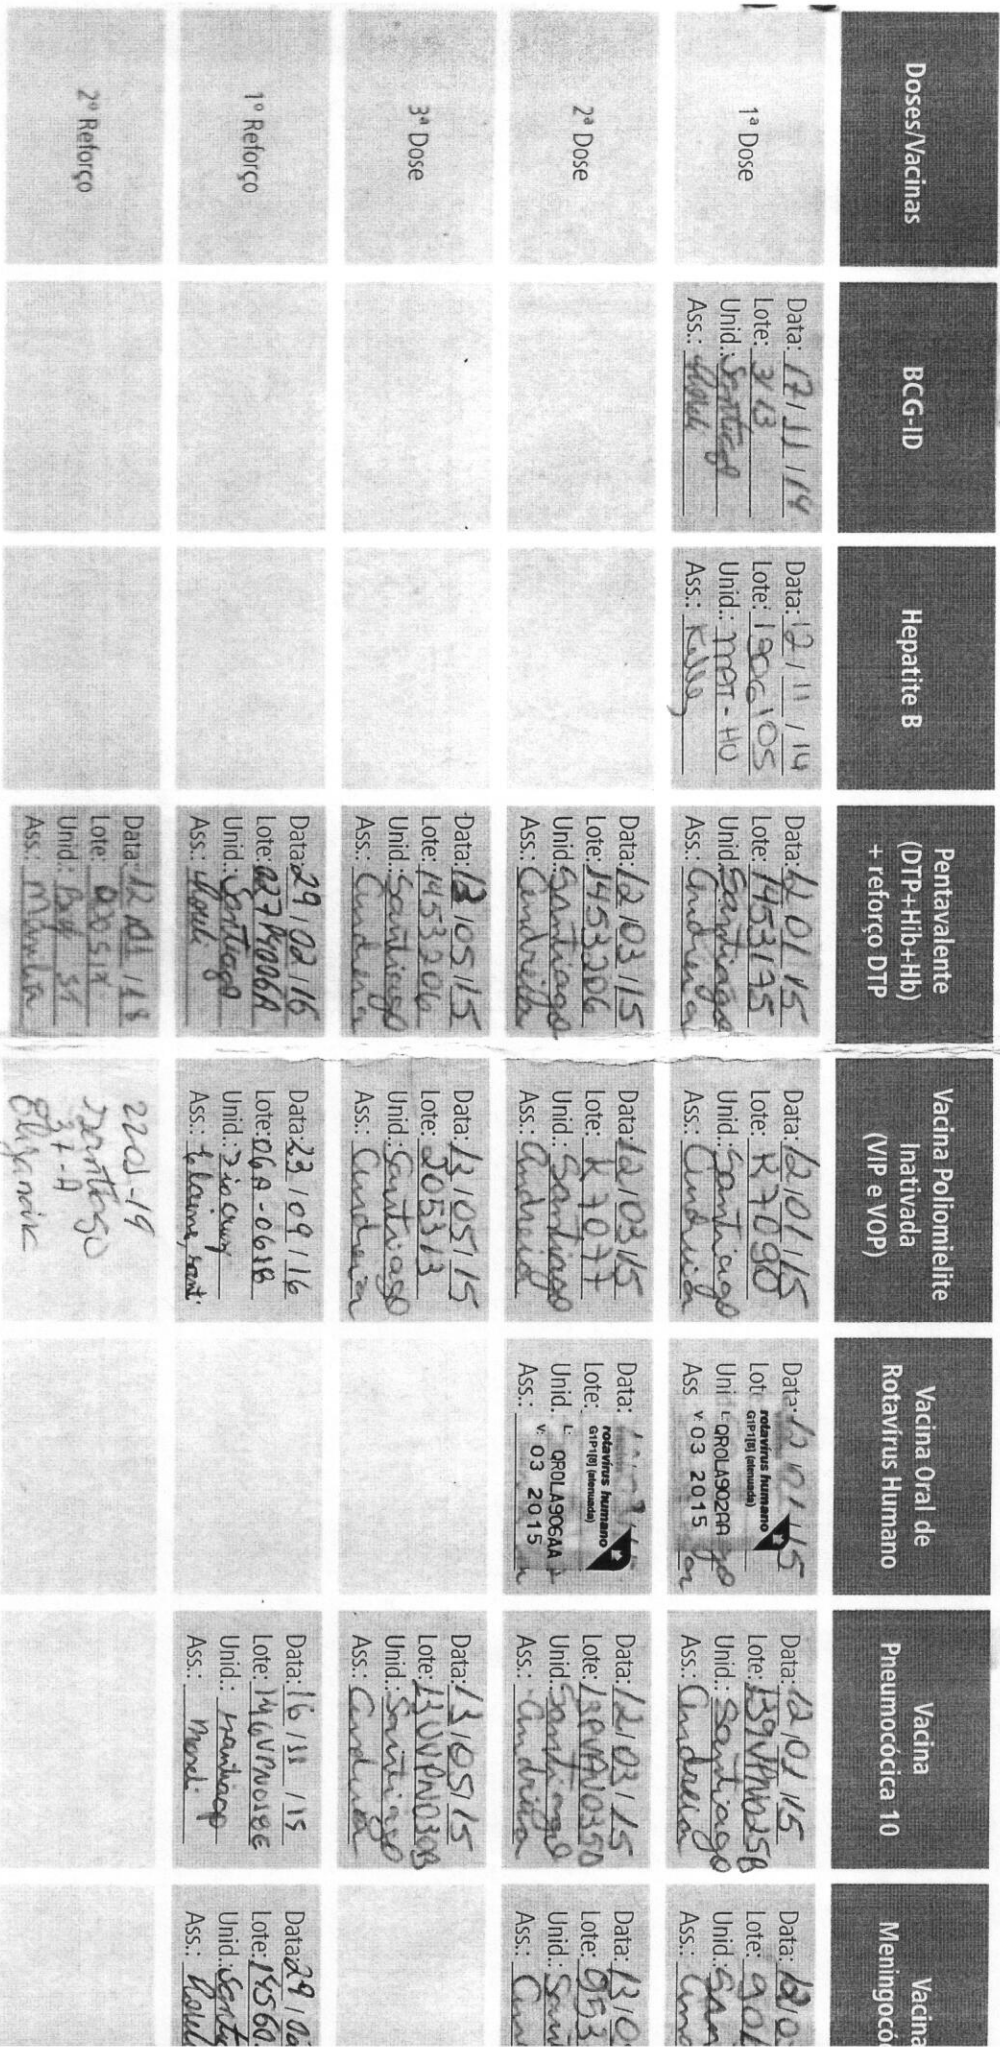 Doses/Vacinas
BCG-ID
Hepatite B
Pentavalente
(DTP+Hib+Hb)
+ reforço DTP
Vacina Poliomielite
Inativada
(VIP e VOP)
Vacina Oral de
Rotavírus Humano
Vacina
Pneumocócica 10
Vacina
Meningocó
1ª Dose
Data: 17/11/14
Lote: 3/13
Unid.: Santiago
Ass.:
Data: 12/11/14
Lote: 1906105
Unid.: MAT-HU
Ass.:
Data: 12/01/15
Lote: 1453175
Unid.: Santiago
Ass.: Andreia
Data: 12/01/15
Lote: K7090
Unid.: Santiago
Ass.: Andreia
Data: 12/01/15
Lote
rotavírus humano
G1P1[8] (atenuada)
Uni
L: QROLA902AA
go
Ass
V: 03 2015
Data: 12/01/15
Lote: 139VPN025B
Unid.: Santiago
Ass.: Andreia
Data: 12/0
Lote: 906
Unid.: San
Ass.: And
2ª Dose
Data: 12/03/15
Lote: 1453206
Unid.: Santiago
Ass.: Andreia
Data: 12/03/15
Lote: K7077
Unid.: Santiago
Ass.: Andreia
Data:
Lote:
rotavírus humano
G1P1[8] (atenuada)
Unid.
L: QROLA906AA
Ass.:
V: 03 2015
Data: 12/03/15
Lote:
Unid.: Santiago
Ass.: Andreia
Data: 13/0
Lote: 0953
Unid.: San
Ass.: An
3ª Dose
Data: 13/05/15
Lote: 1453206
Unid.: Santiago
Ass.: Andreia
Data: 13/05/15
Lote: 205313
Unid.: Santiago
Ass.: Andreia
Data: 13/05/15
Lote: 13UVPN030B
Unid.: Santiago
Ass.: Andreia
1º Reforço
Data: 29/02/16
Lote:
Unid.: Santiago
Ass.:
Data: 23/09/16
Lote:
Unid.:
Ass.: Elaine
Data: 16/11/15
Lote: 146VPN018E
Unid.: Santiago
Ass.:
Data: 29/02
Lote: 14560
Unid.: Santi
Ass.:
2º Reforço
Data: 12/01/18
Lote:
Unid.:
Ass.:
22 01-19
Santiago
37-A